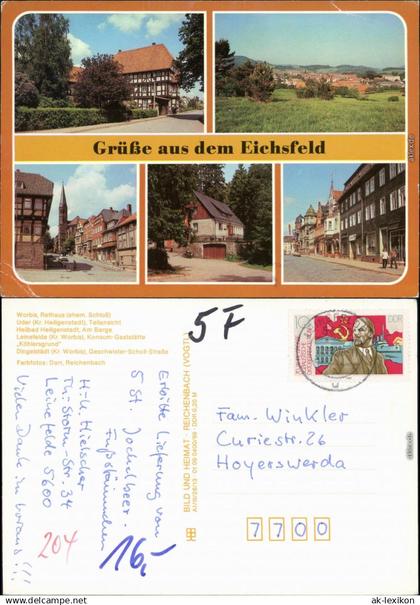 Grüße aus dem Eichsfeld
Worbis, Rathaus (ehem. Schloß)
Uder (Kr. Heiligenstadt), Teilansicht
Heilbad Heiligenstadt, Am Berge
Leinefelde (Kr. Worbis), Konsum-Gaststätte
"Köhlersgrund"
Dingelstädt (Kr. Worbis), Geschwister-Scholl-Straße
Farbfotos: Darr, Reichenbach
BILD UND HEIMAT · REICHENBACH (VOGTL)
5 F
10
DDR
Erbitte Lieferung von
5 St. Jochelbeer-
Fußstämmchen
16,-
H.-U. Hielscher
Th.-Storm-Str. 34
Leinefelde 5600
Vielen Dank im voraus!!!
204
Fam. Winkler
Curiestr. 26
Hoyerswerda
7700
www.delcampe.net
ak-lexikon